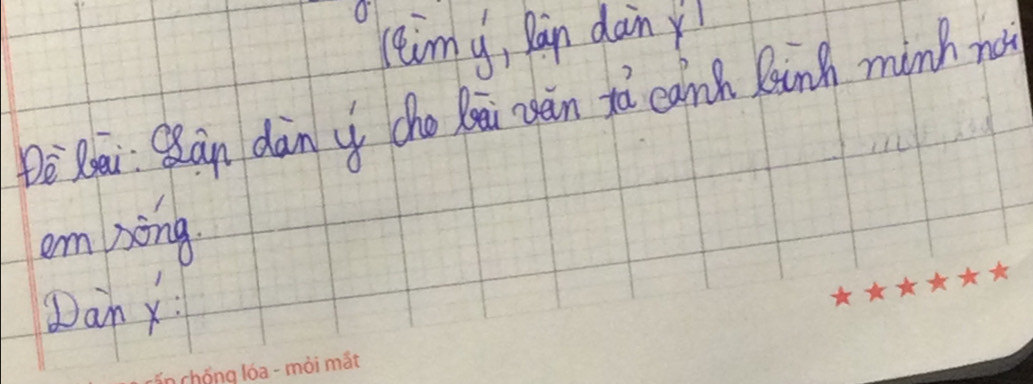 (Tìm ý, lập dàn ý)
Đề bài: Lập dàn ý cho bài văn tả cảnh bình minh nơi
em sống.
Dàn ý:
chống lóa - mỏi mắt